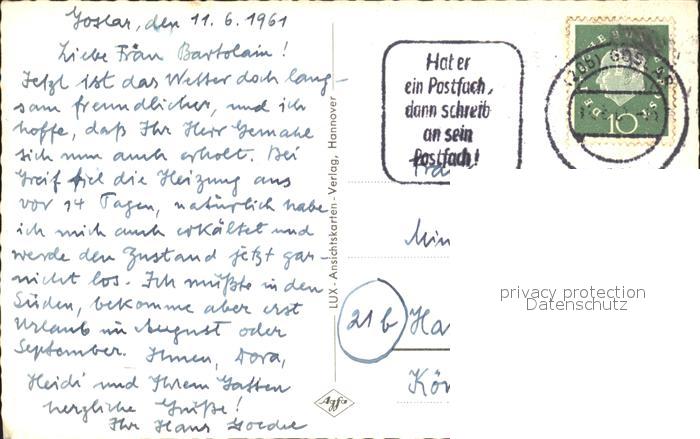 Goslar, den 11. 6. 1961
Liebe Frau Bartolain!
Jetzt ist das Wetter doch lang-
sam freundlicher, und ich
hoffe, daß Ihr Herr Gemahl
sich nun auch erholt. Bei
Greif fiel die Heizung aus
vor 14 Tagen, natürlich habe
ich mich auch erkältet und
werde den Zustand jetzt gar-
nicht los. Ich müßte in den
Süden, bekomme aber erst
Urlaub im August oder
September. Ihnen, Dora,
Heidi und Ihrem Gatten
herzliche Grüße!
Ihr Hans
LUX-Ansichtskarten-Verlag, Hannover
Agfa
Hat er
ein Postfach,
dann schreib
an sein
Postfach!
10
21b
privacy protection
Datenschutz